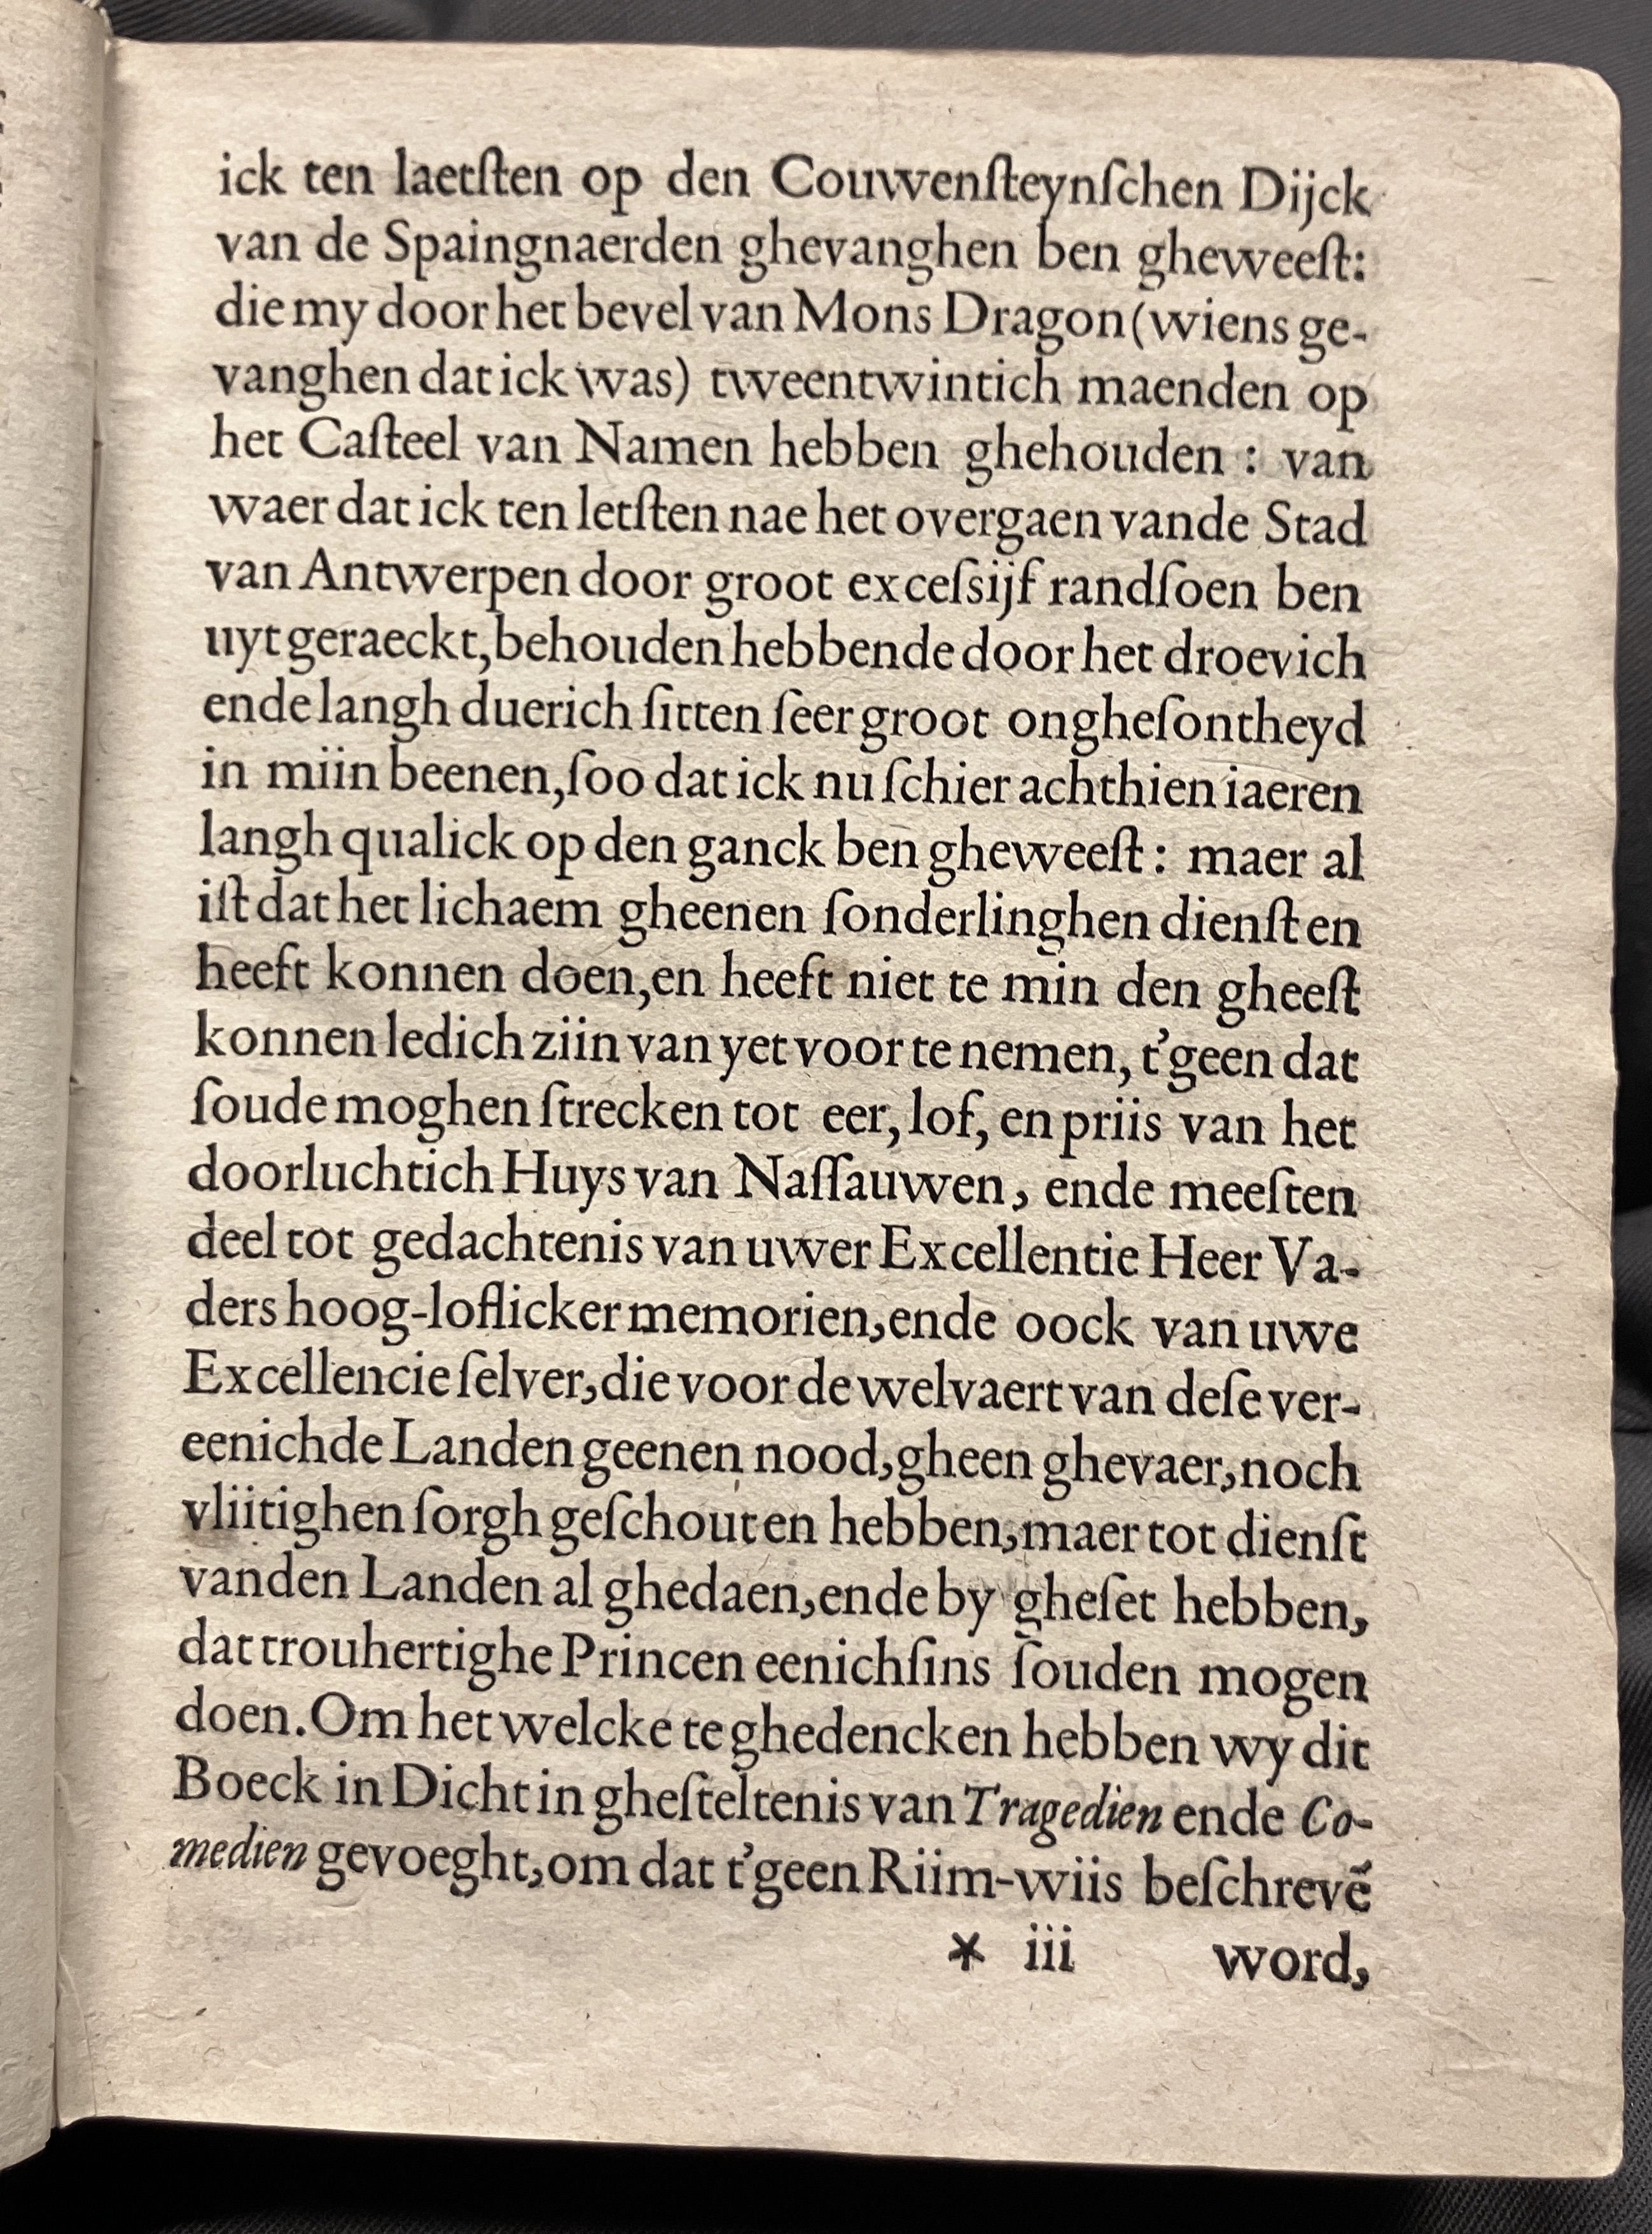 ick ten laetſten op den Couwenſteynſchen Dijck
van de Spaingnaerden ghevanghen ben gheweeſt:
die my door het bevel van Mons Dragon (wiens ge-
vanghen dat ick was) tweentwintich maenden op
het Caſteel van Namen hebben ghehouden : van
waer dat ick ten letſten nae het overgaen vande Stad
van Antwerpen door groot exceſsijf randſoen ben
uyt geraeckt, behouden hebbende door het droevich
ende langh duerich ſitten ſeer groot ongheſontheyd
in miin beenen, ſoo dat ick nu ſchier achthien iaeren
langh qualick op den ganck ben gheweeſt : maer al
iſt dat het lichaem gheenen ſonderlinghen dienſt en
heeft konnen doen, en heeft niet te min den gheeſt
konnen ledich ziin van yet voor te nemen, t'geen dat
ſoude moghen ſtrecken tot eer, lof, en priis van het
doorluchtich Huys van Naſſauwen, ende meeſten
deel tot gedachtenis van uwer Excellentie Heer Va-
ders hoog-loflicker memorien, ende oock van uwe
Excellencie ſelver, die voor de welvaert van deſe ver-
eenichde Landen geenen nood, gheen ghevaer, noch
vliitighen ſorgh geſchout en hebben, maer tot dienſt
vanden Landen al ghedaen, ende by gheſet hebben,
dat trouhertighe Princen eenichſins ſouden mogen
doen. Om het welcke te ghedencken hebben wy dit
Boeck in Dicht in gheſteltenis van Tragedien ende Co-
medien gevoeght, om dat t'geen Riim-wiis beſchrevẽ
* iii word,